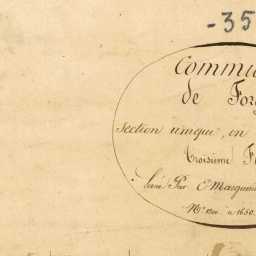 -35
Commu
de For
Section unique, en
Troisième F
Levé Par
Nos à 1650